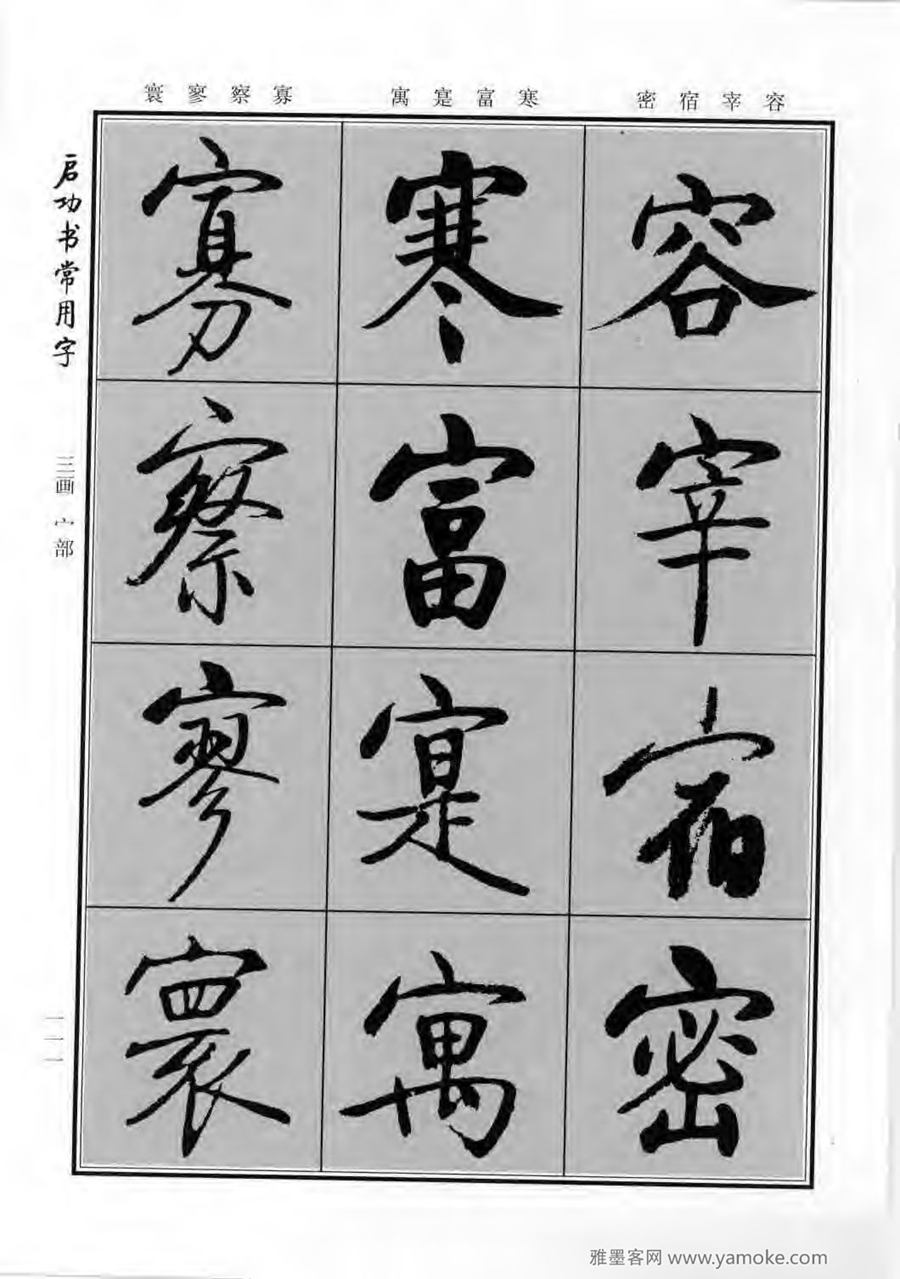 容宰宿密 寒富寔寓 寡察寥寰
容宰宿密
寒富寔寓
寡察寥寰
启功书常用字
三画 宀部
一一一
雅墨客网 www.yamoke.com